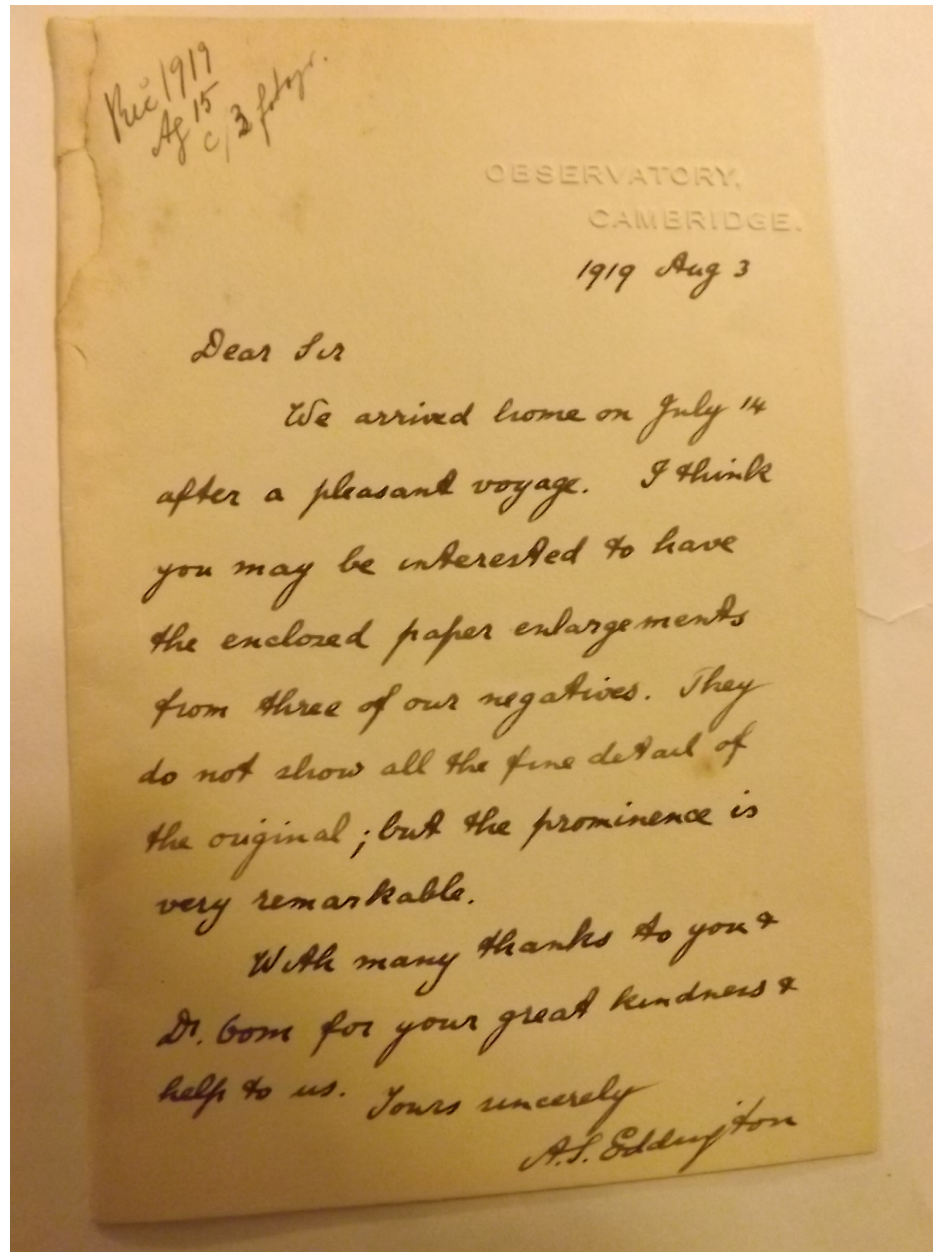 Rec 1919
Ag 15
c/3 fotogr.
OBSERVATORY,
CAMBRIDGE.
1919 Aug 3
Dear Sir
We arrived home on July 14
after a pleasant voyage. I think
you may be interested to have
the enclosed paper enlargements
from three of our negatives. They
do not show all the fine detail of
the original; but the prominence is
very remarkable.
With many thanks to you &
Dr. Gom for your great kindness &
help to us. Yours sincerely
A.S. Eddington